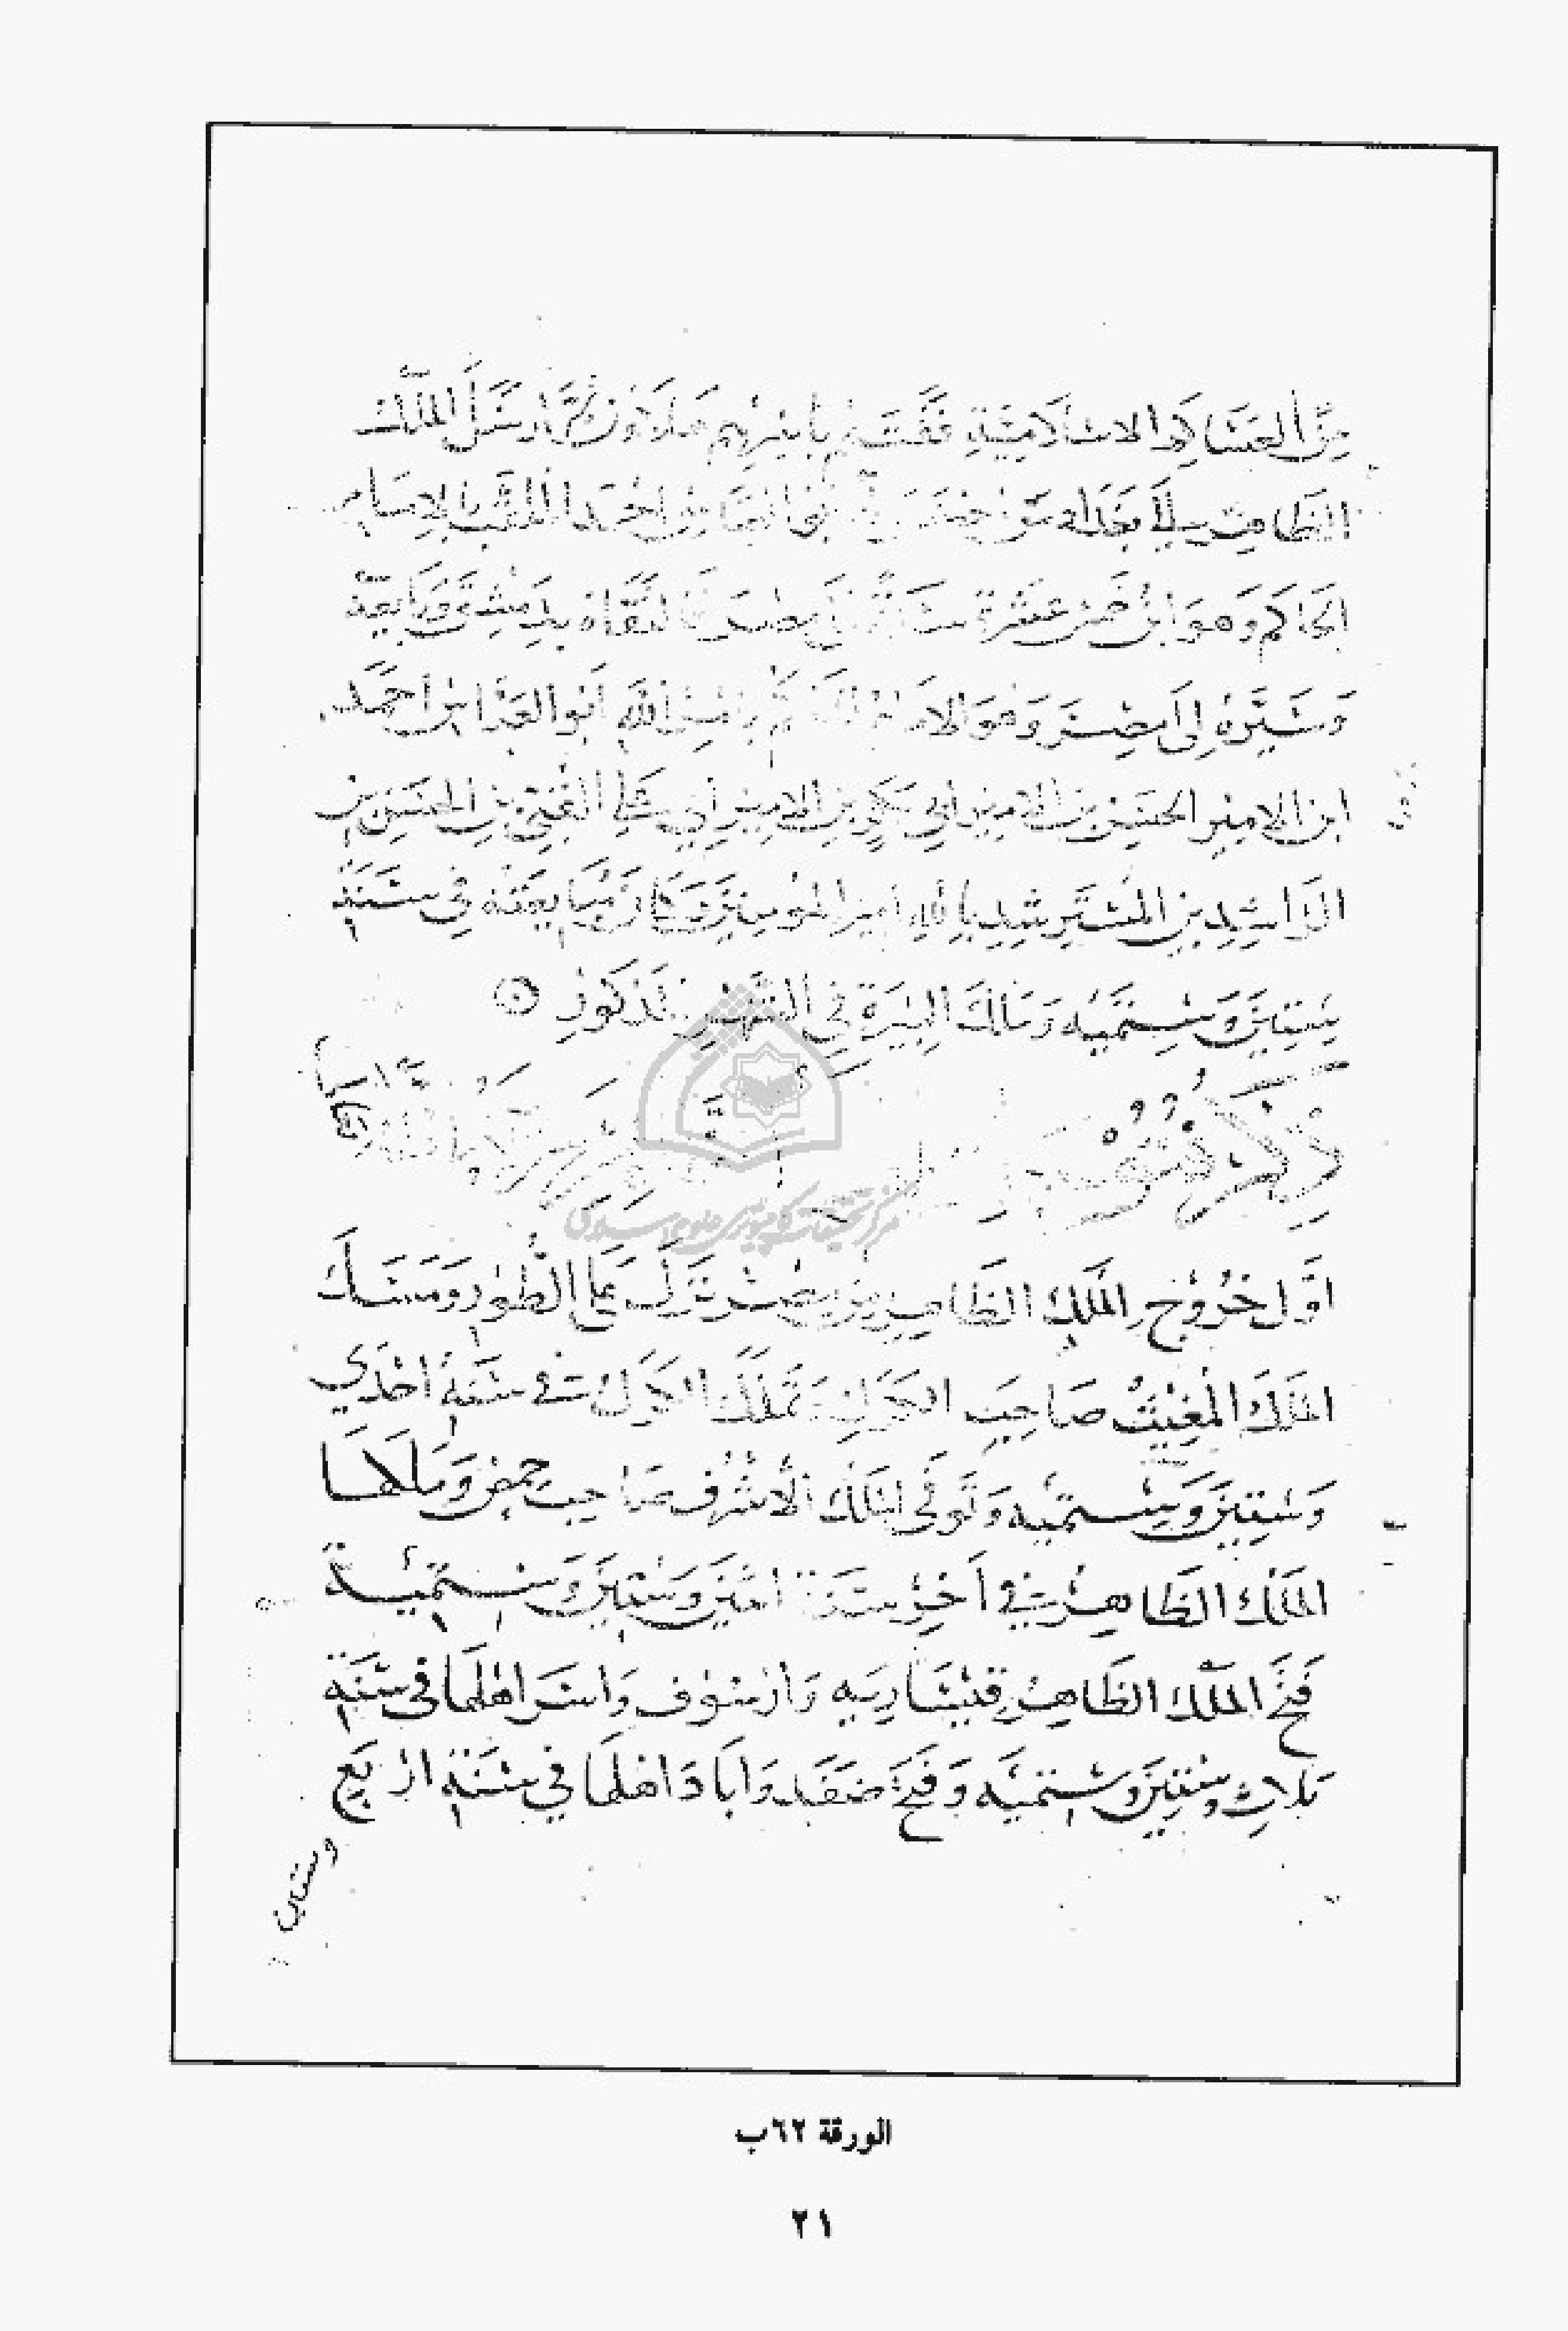 مِنَ العَسَاكِر الاسلاميّةِ فقتلهم باسرهم هلاوون ثمّ ارسَل الملك
الظاهر الى بغداد من احضر احمد الملقب بالامام
الحاكم وَهوَ ابن خمس عشرة سنة لتقاه بدمشق وبايعه
وَسَيَّرهُ إلى مصر وَهوَ الامام الحاكم بامر الله أبو العباس احمد
ابن الامير الحسن بن الامير أبي بكر بن الامير أبي علي القبي بن الحسن بن
الراشد بن المسترشد بالله امير المومنين وَكانَت بيعته في سنة
ستين وَستميه وَملك البيرة في الشهر المذكور
ذكر
اوّل خُرُوج الملك الظاهر من مصر نزل على الطور وَمَسَكَ
الملكَ المُغيثَ صَاحِبَ الكَرَكِ وَتملّك الكرك في سَنة احدَي
وَستينَ وَستميه وَتوفي الملك الأشرف صَاحِب حمص وَملكهَا
الملك الظاهر في آخر سنة اثنين وَستين وَستميئة
فتح الملك الظاهر قيسَاريه وَارسُوف وَاسَر اهلها في سَنة
ثلاث وستين وستميه وَفتح صَفَد وَابَاد اهلها في سَنة اربَع
وستين
الورقة ٦٢ب
٢١